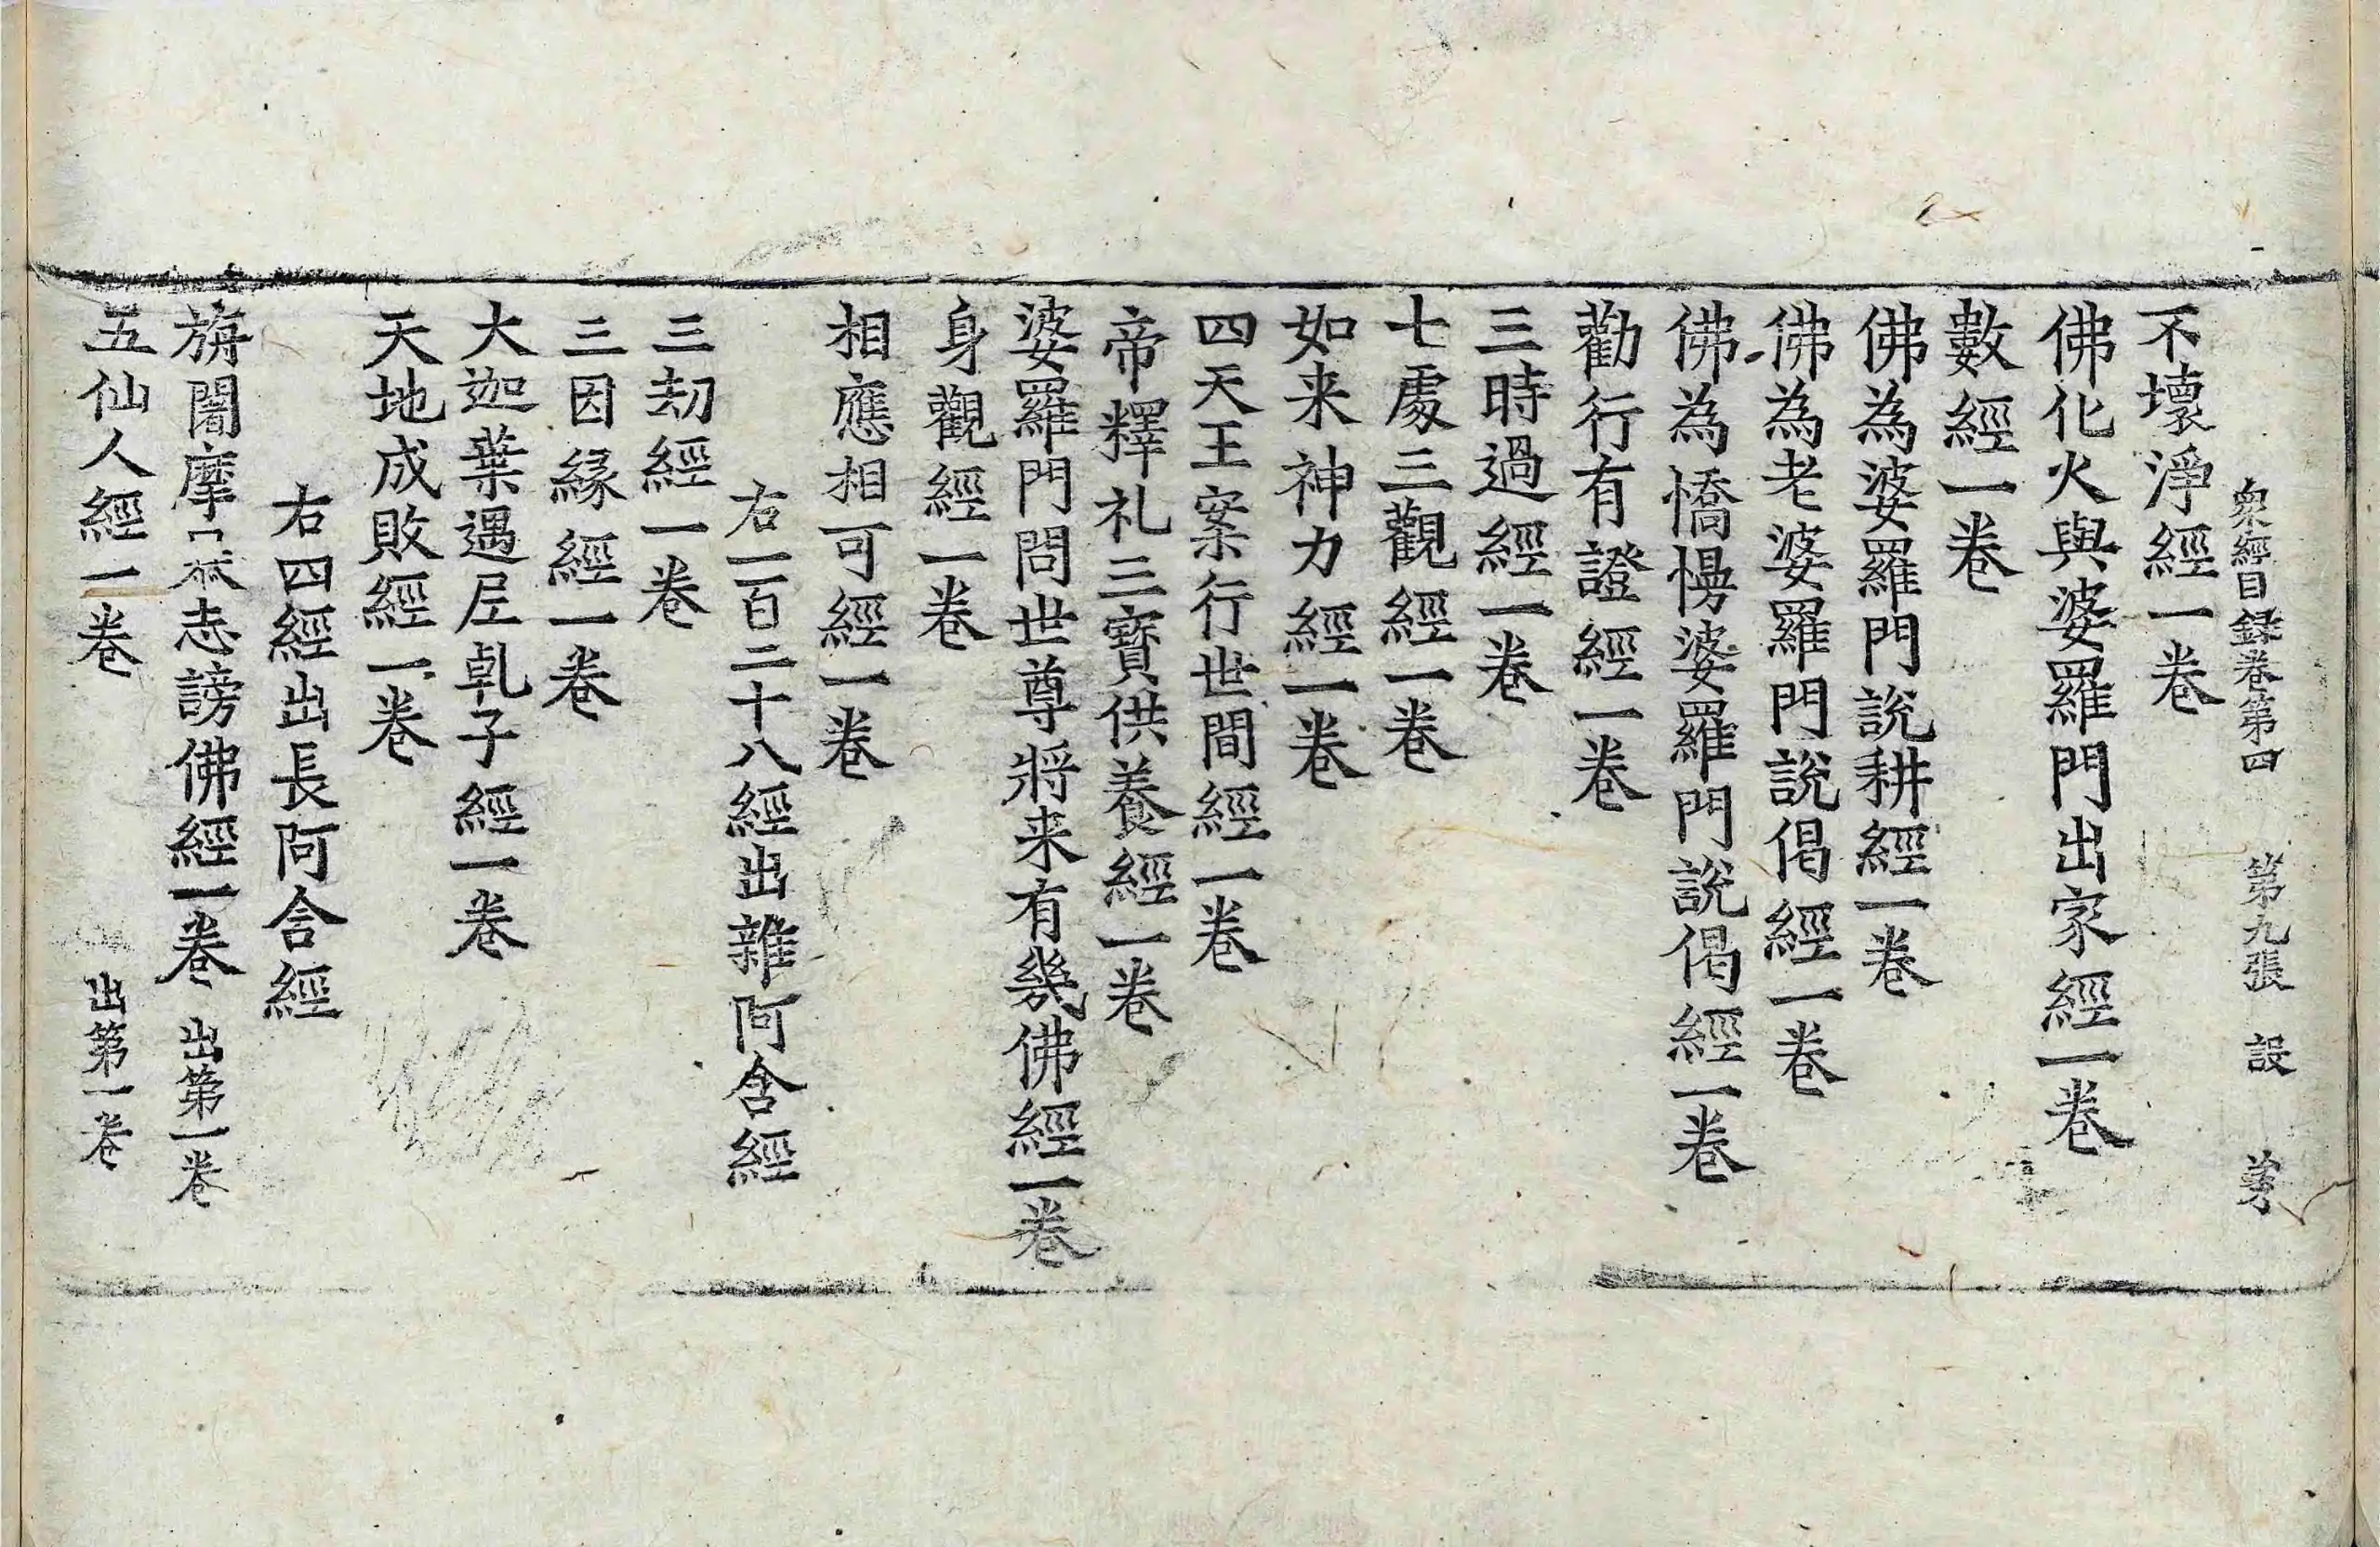 衆經目録卷第四 第九張 設
不壞淨經一卷
佛化火與婆羅門出家經一卷
數經一卷
佛為婆羅門說耕經一卷
佛為老婆羅門說偈經一卷
佛為憍慢婆羅門說偈經一卷
勸行有證經一卷
三時過經一卷
七處三觀經一卷
如来神力經一卷
四天王案行世間經一卷
帝釋礼三寶供養經一卷
婆羅門問世尊將来有幾佛經一卷
身觀經一卷
相應相可經一卷
右一百二十八經出雜阿含經
三刧經一卷
三因縁經一卷
大迦葉遇尼乹子經一卷
天地成敗經一卷
右四經出長阿含經
旃闍摩志謗佛經一卷 出第一卷
五仙人經一卷 出第一卷